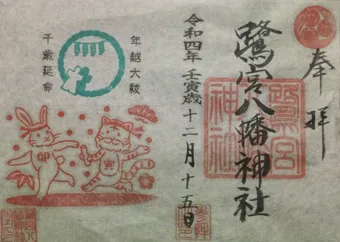 奉拝
鷺宮八幡神社
鷺宮
神社
令和四年 壬寅歳 十二月十五日
年越大祓
千歳延命
卯
寅